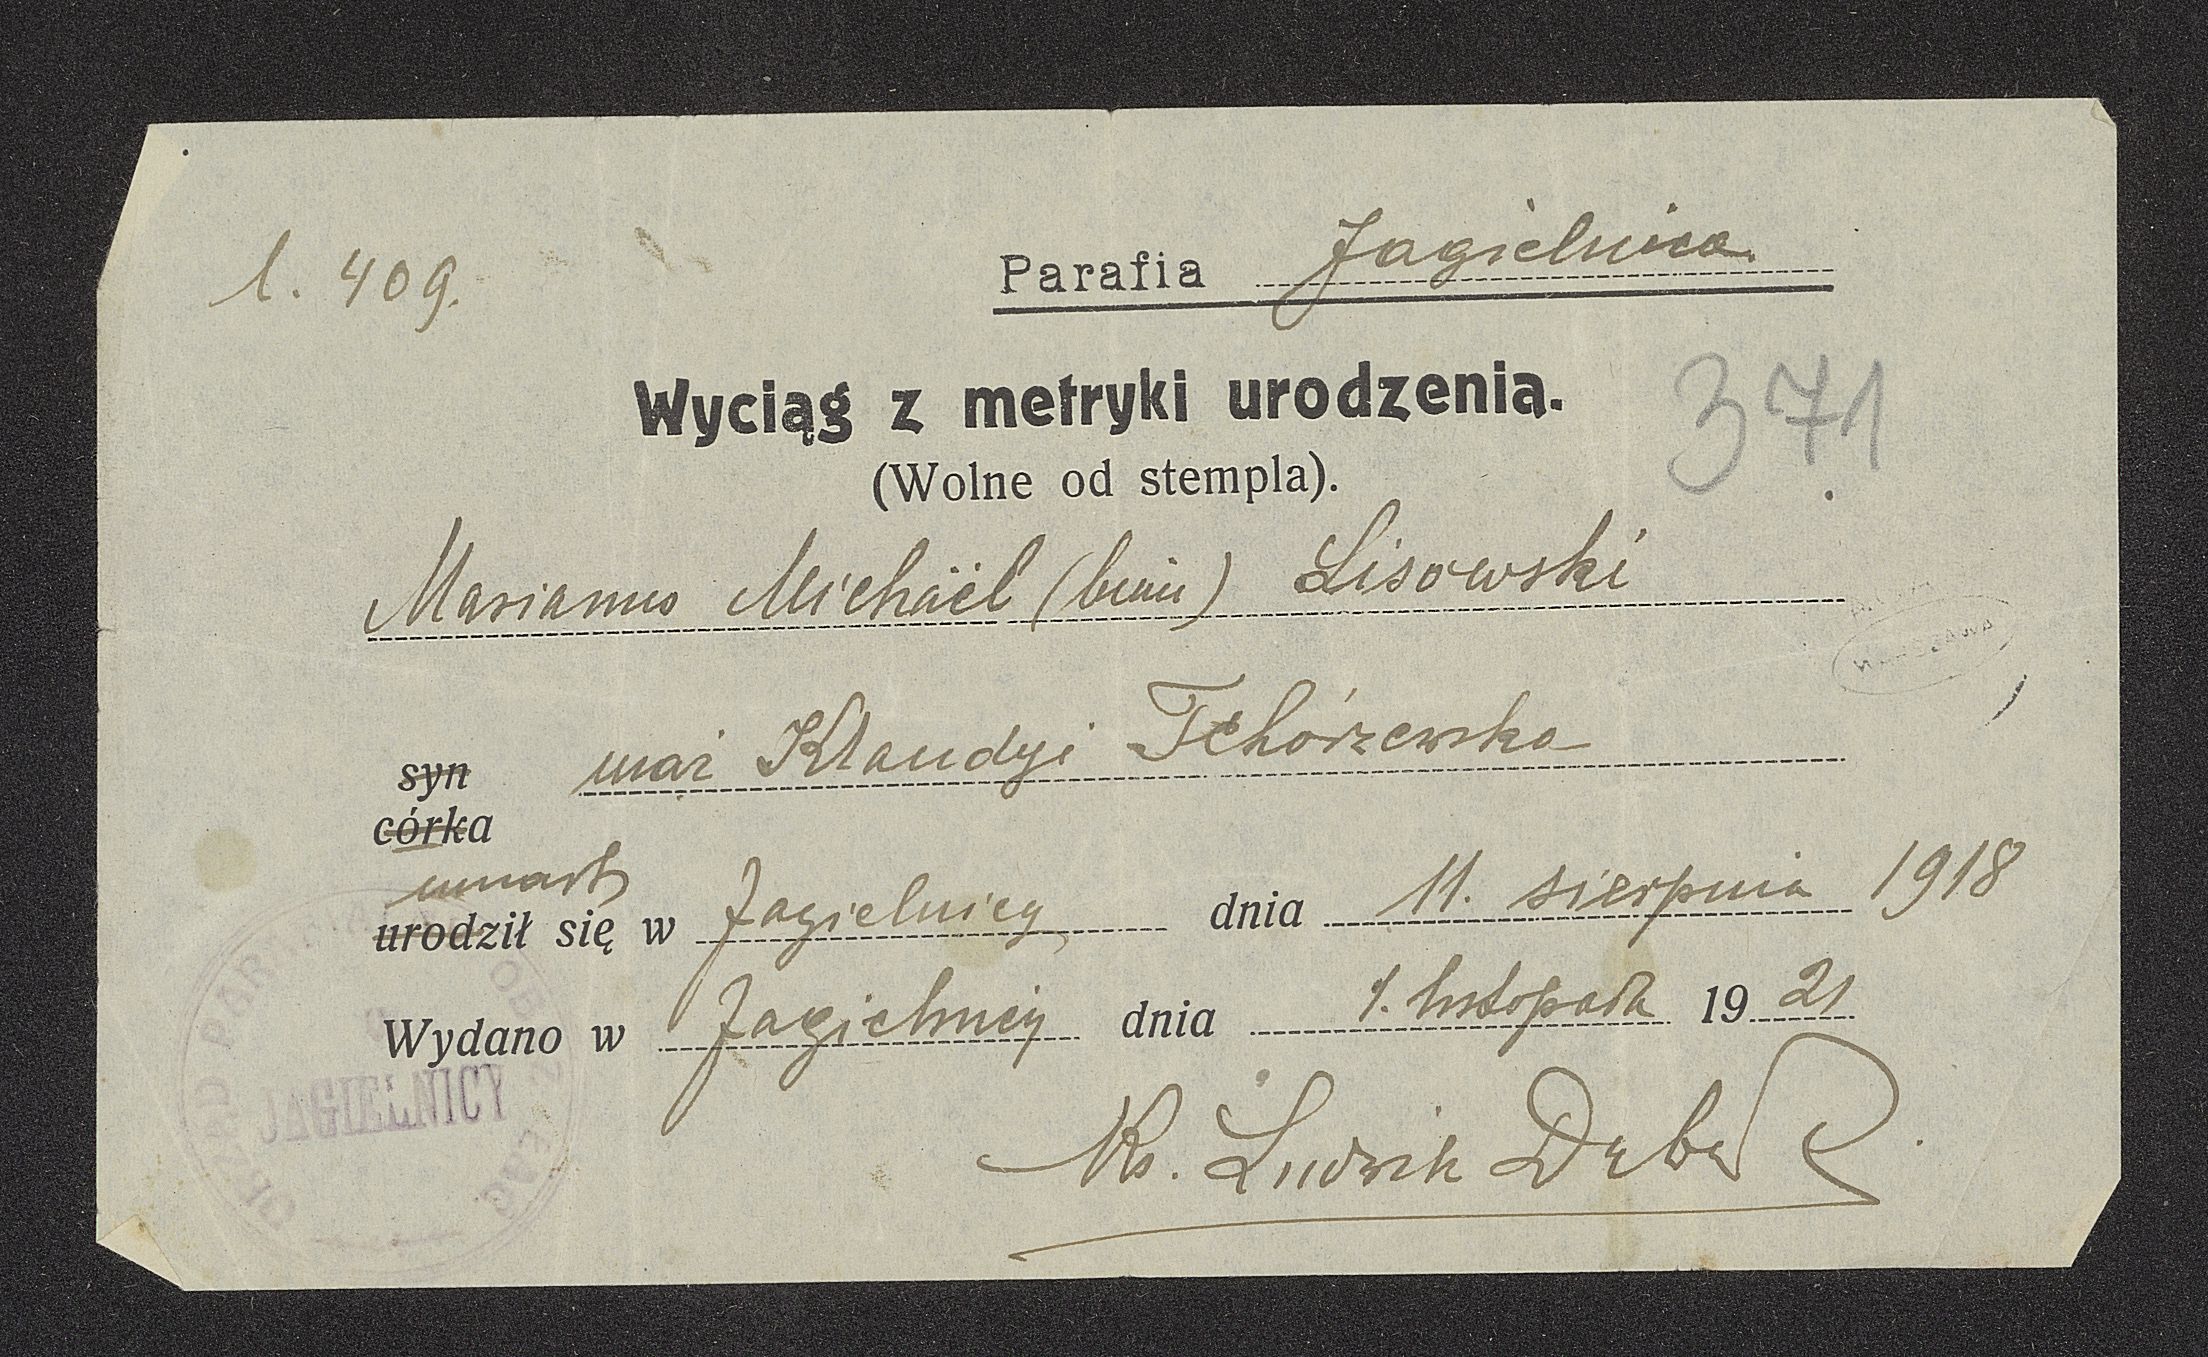 l. 409.
Parafia Jagielnica
Wyciąg z metryki urodzenia.
371
(Wolne od stempla).
Marianus Michaël (binū) Lisowski
WARSZAWA
syn
córka
mąż Klaudyi Tchórzewska
umarł
urodził się w Jagielnicy dnia 11. sierpnia 1918
Wydano w Jagielnicy dnia 1. listopada 1921
URZĄD PARAFIALNY OBRZ. ŁAC.
W
JAGIELNICY
Ks. Ludwik